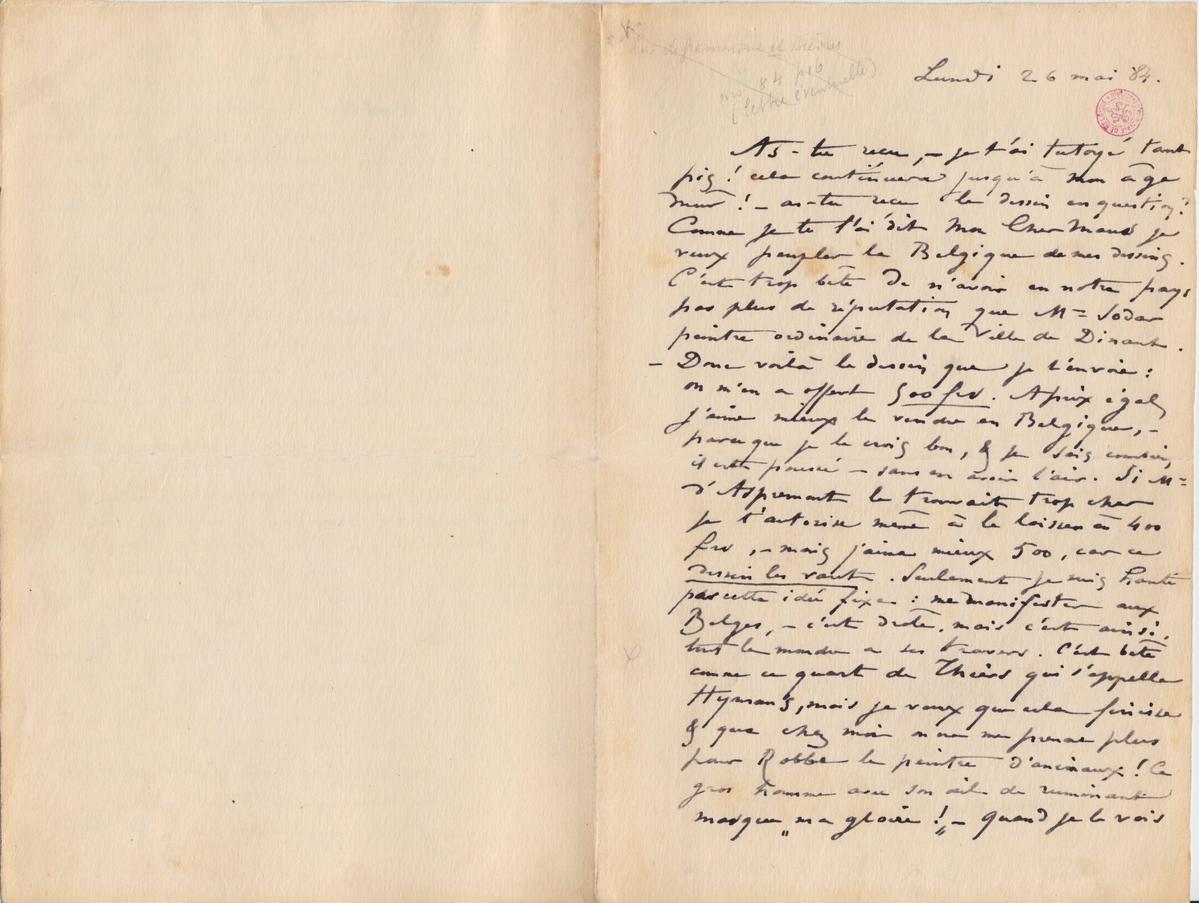 Lundi 26 mai 84.
As-tu recu, – je t'ai tutoyé tant
pis ! cela continuera jusqu'à mon âge
mûr ! – as-tu recu le dessin en question ?
Comme je te l'ai dit Mon Cher Maus je
veux peupler la Belgique de mes dessins.
C'est trop bête de n'avoir en notre pays
pas plus de réputation que Mr Sodar
peintre ordinaire de la Ville de Dinant.
– Donc voilà le dessin que je t'envoie :
on m'en a offert 500 frs. A prix égal
j'aime mieux le vendre en Belgique, –
parceque je le crois bon, & je sais combien
il est poussé – sans en avoir l'air. Si Mr
d'Aspremont le trouvait trop cher
je t'autorise même à le laisser à 400
frs, – mais j'aime mieux 500, car ce
dessin les vaut. Seulement je suis hanté
par cette idée fixe : me manifester aux
Belges, – c'est drôle, mais c'est ainsi,
tout le monde a ses travers. C'est bête
comme ce quart de Thiers qui s'appelle
Hymans, mais je veux que cela finisse
& que chez moi on ne me prenne plus
pour Robbe le peintre d'animaux ! Ce
gros homme avec son œil de ruminant
masque „ma gloire !„ – Quand je le vois